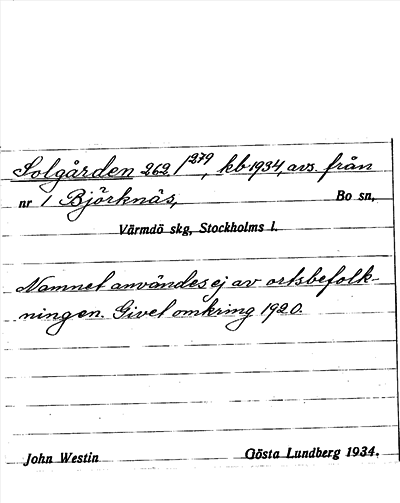 Solgården 262 1/279, kb 1934, avs. från
nr 1 Björknäs, Bo sn,
Värmdö skg, Stockholms l.
Namnet användes ej av ortsbefolk-
ningen. Givet omkring 1920.
John Westin Gösta Lundberg 1934.